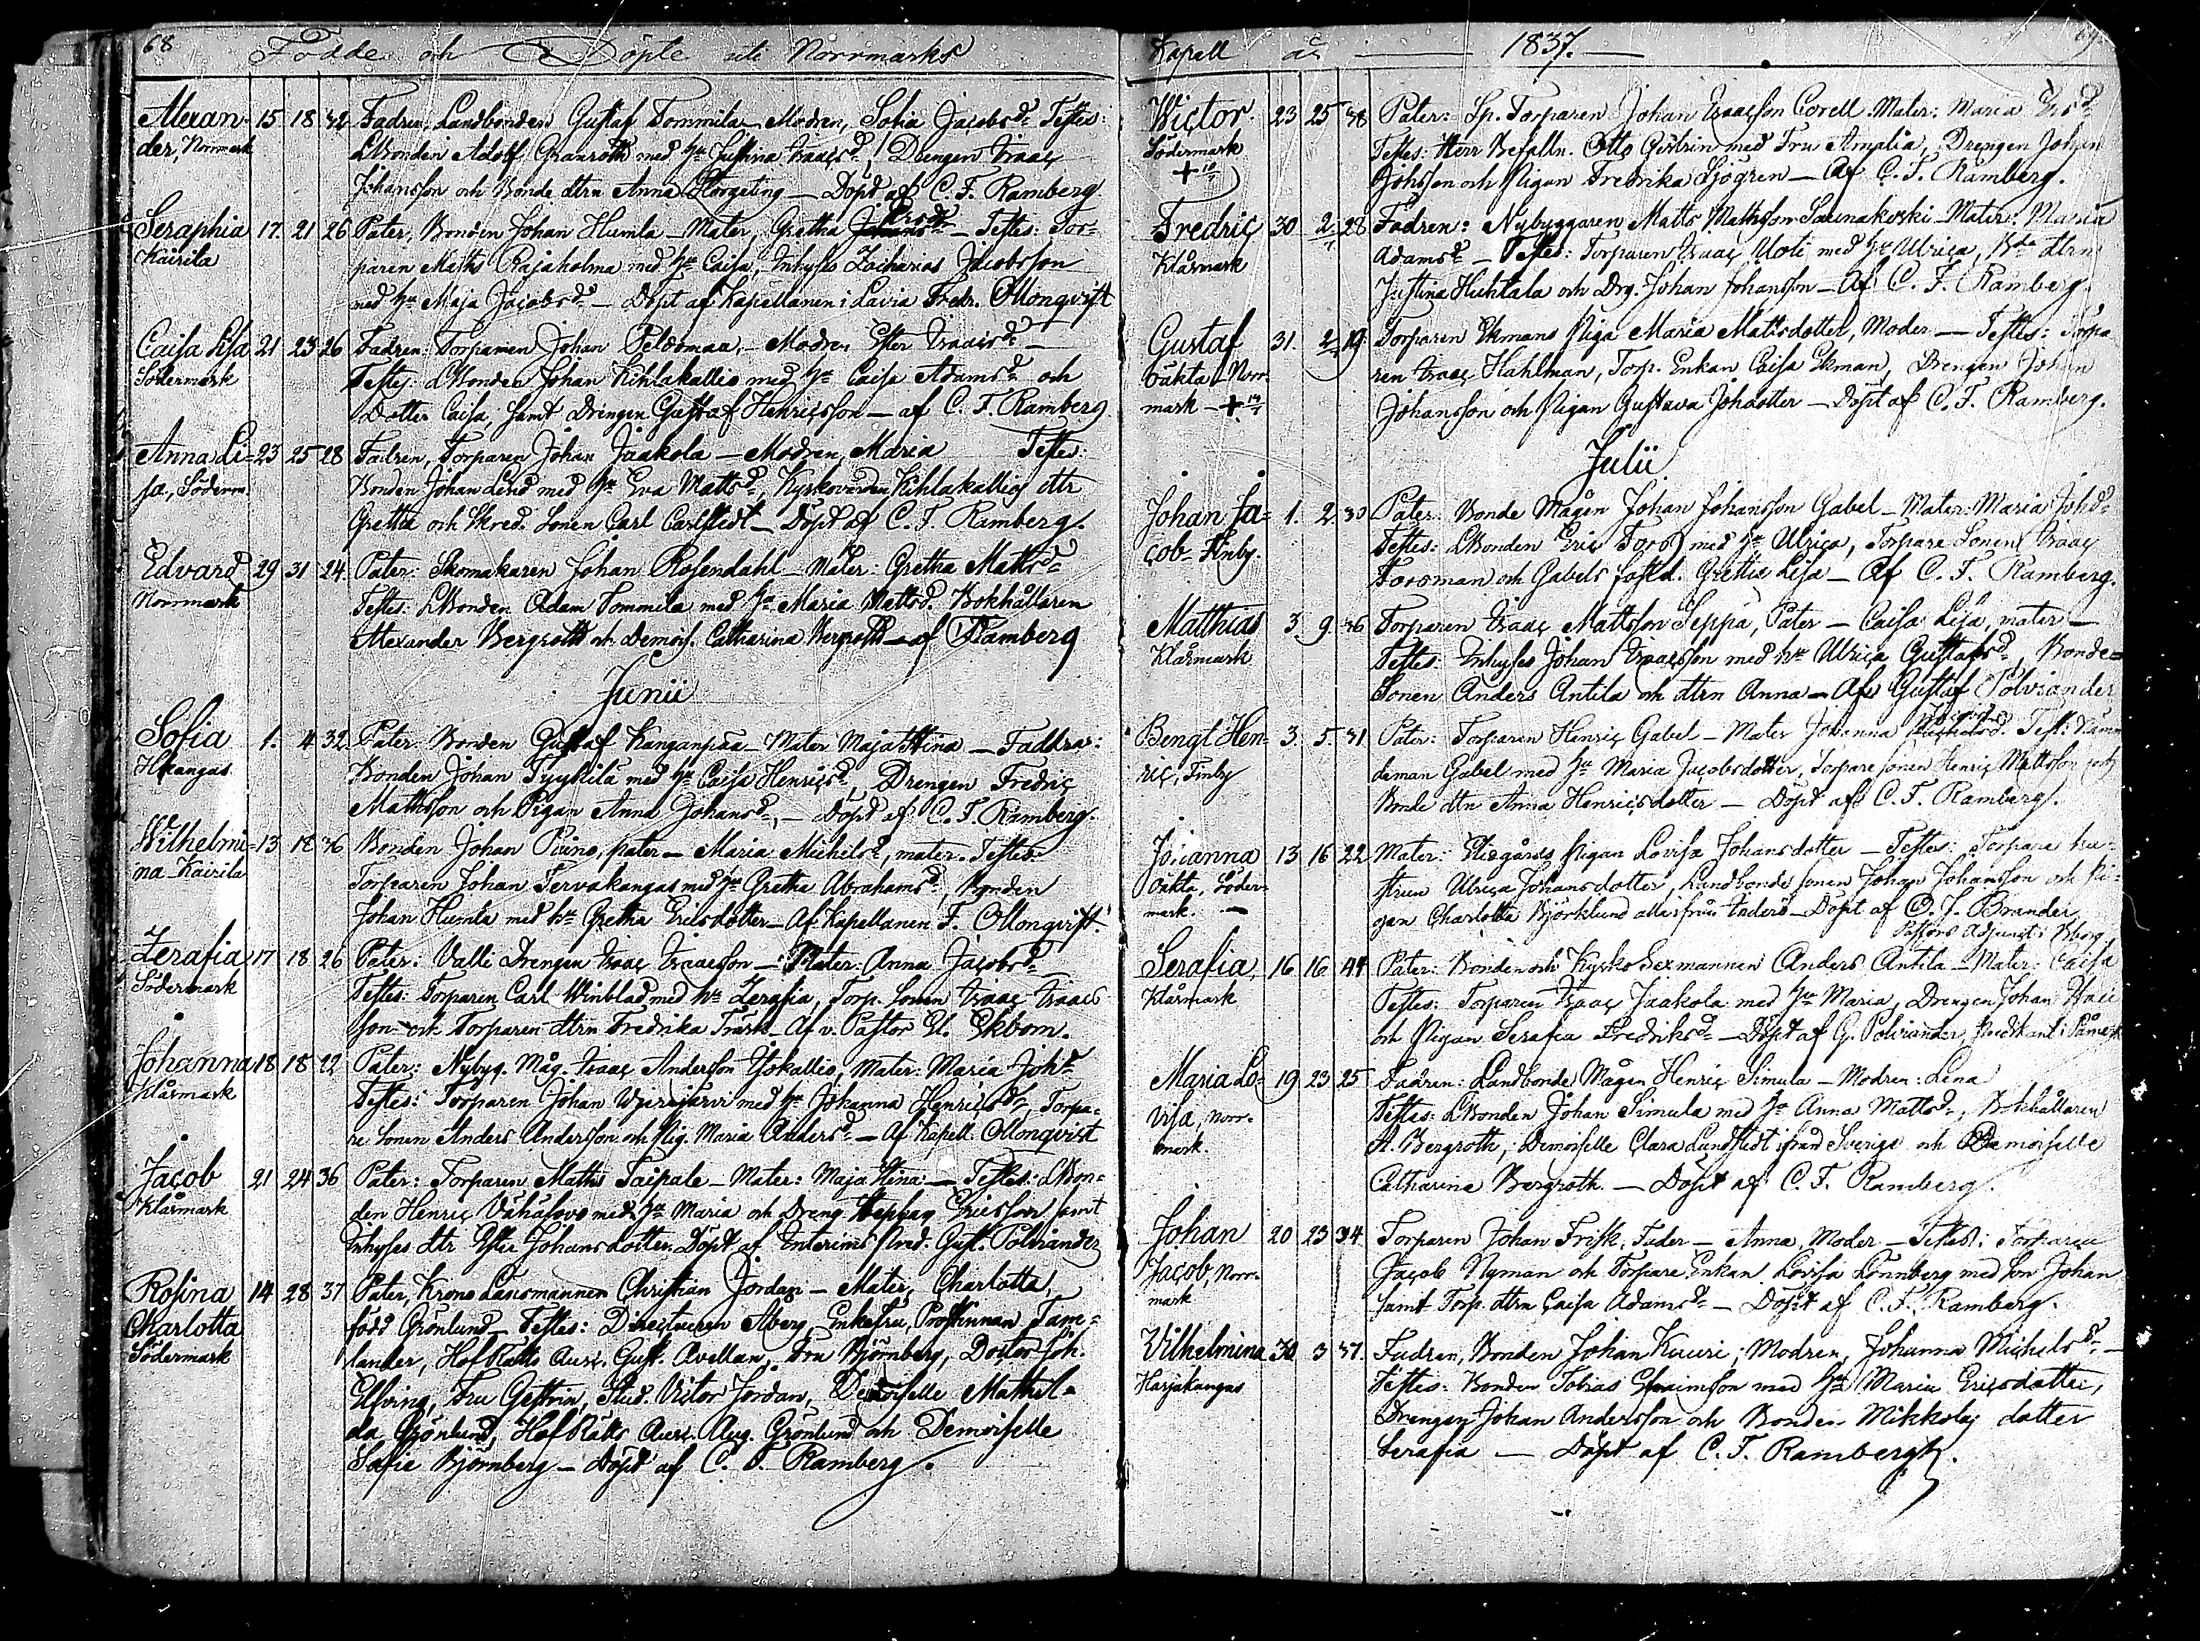 68
Födde och Döpte uti Norrmarks
Alexan- 15 18 32 Fadren, Landbonden Gustaf Tommila - Modren, Sofia Jacobsdr Testes:
der, Norrmark LBonden Adolf Granroth med hu Justina Isaacsdr, Drengen Isaac
Johansson och Bonde dtrn Anna - Döpt af C. F. Ramberg
Seraphia 17. 21 26 Pater, Bonden Johan Humla - Mater, Gretha Ersdr - Testes: Tor-
Kairila paren Matts Rajaholma med hu Caisa, Inhyses Zacharias Jacobsson
med hu Maja Jacobsdr - Döpt af Kapellanen i Lavia Fredr. Ollonqvist
Caisa Lisa 21 23 26 Fadren: Torparen Johan Peldomaa, - Modren Ester Isaacsdr -
Södermark Testes: LBonden Johan Kihlakallio med hu Caisa Adamsdr och
Dotter Caisa, samt Drengen Gustaf Henricsson - af C. F. Ramberg
Anna Li= 23 25 28 Fadren, Torparen Johan Jaakola - Modren, Maria Testes:
sa, Söderm. Bonden Johan Lind med hu Eva Mattsdr, Kyrkovärden Kihlakallios dtr
Gretha och Skred. Sonen Carl Carlstedt - Döpt af C. F. Ramberg.
Edvard 29 31 24 Pater: Skomakaren Johan Rosendahl - Mater: Gretha Mattsdr
Norrmark Testes: LBonden Adam Tommila med hu Maria Mattsd. Bokhållaren
Alexander Bergroth och Demois. Catharina Bergroth - af Ramberg
Junii
Sofia 1. 4 32 Pater Bonden Gustaf Kanganpää - Mater Maja Stina - Faddrar:
Hkangas Bonden Johan Tyykilä med hu Caisa Henricsdr, Drengen Fredric
Mattsson och Pigan Anna Johansdr, - Döpt af C. F. Ramberg.
Wilhelmi- 13 18 36 Bonden Johan Prino, pater - Maria Michelsdr, mater. Testes:
na - Kairila Torparen Johan Tervakangas med hu Gretha Abrahamsdr, Bonden
Johan Humla med hu Gretha Ericsdotter - Af Kapellanen F. Ollonqvist.
Zerafia 17 18 26 Pater: Valli Drengen Isaac Isaacsson - Mater: Anna Jacobsdr
Södermark Testes: Torparen Carl Winblad med hu Zerafia, Torp. Sonen Isaac Isaacs-
son och Torparen dtrn Fredrika Träsk - Af v. Pastor El. Ekbom.
Johanna 18 18 22 Pater: Nybyg. Måg. Isaac Andersson Yskallio, Mater: Maria Johdr
Klåsmark Testes: Torparen Johan med hu Johanna Henricsdr, Torpa-
re Sonen Anders Andersson och Pig. Maria Andersdr - Af Kapell. Ollonqvist
Jacob 21 24 36 Pater: Torparen Matts Taipale - Mater: Maja Stina - Testes: LBon-
Klåsmark den Henric Vähäsavo med hu Maria och Dreng Stephan Ericsson samt
Inhyses dtr Ester Johansdotter. Döpt af Interims Pred. Gust. Polviander
Rosina 14 28 37 Pater, Krono Länsmannen Christian Jordan - Mater, Charlotta,
Charlotta född Grönlund - Testes: Directeuren Åberg, Enkefru, Prostinnan Tam-
Södermark lander, HofRätts Ausc. Gust. Avellan, Fru Björnberg, Doctor Joh.
Elfving, Fru Gestrin, Stud. Victor Jordan, Demoiselle Mathil-
da Grönlund, HofRätts Ausc. Aug. Grönlund och Demoiselle
Sofie Björnberg - Döpt af C. F. Ramberg.
Kapell år 1837.
69
Wictor. 23 25 38 Pater: Sp. Torparen Johan Isaacsson Corell. Mater: Maria
Södermark Testes: Herr Befalln. Otto Gestrin med Fru Amalia, Drengen Johan
Johsson och Pigan Fredrika Sjögren - Af C. F. Ramberg.
Fredric 30 2 28 Fadren: Nybyggaren Matts Mathsson Saunakoski - Mater: Maria
Klåsmark Adamsdr - Testes: Torparen Isaac Uoti med hu Ulrica, Bde dtrn
Justina Huhtala och Drg. Johan Johansson - Af C. F. Ramberg.
Gustaf 31. 2 19 Torparen Ekmans Piga Maria Mattsdotter, Moder - Testes: Torpa-
oäkta - Norr- ren Isaac Hahlman, Torp. Enkan Caisa Ekman, Drengen Johan
mark - Johansson och Pigan Gustava Johdotter - Döpt af C. F. Ramberg.
Julii
Johan Ja- 1. 2. 30 Pater: Bonde Mågen Johan Johansson Gabel - Mater: Maria Johdr
cob - Finby. Testes: LBonden Eric Foro med hu Ulrica, Torpare Sonen Isaac
Forsman och Gabels Grettie Lisa - Af C. F. Ramberg.
Matthias 3 9 36 Torparen Isaac Mattsson Seppä, Pater - Caisa Lisa, mater -
Klåsmark Testes: Inhyses Johan Isaacsson med hu Ulrica Gustafsdr, Bonde-
Sonen Anders Antila och dtrn Anna - Af Gustaf Polviander
Bengt Hen- 3. 5. 31 Pater: Torparen Henric Gabel - Mater Johanna Test: Nämn-
ric, Finby deman Gabel med hu Maria Jacobsdotter, Torpare sonen Henric Mattsson och
Bonde dtn Anna Henricsdotter - Döpt af C. F. Ramberg.
Johanna 13 16 22 Mater: Pigan Lovisa Johansdotter - Testes: Torpare hu-
oäkta, Söder- strun Ulrica Johansdotter, Landbonde sonen Johan Johansson och Pi-
mark. gan Charlotta Björklund - Döpt af O. J. Brander,
Pastors Adjunct i Bborg
Serafia 16 16 44 Pater: Bonden och Kyrko Sexmannen Anders Antila - Mater: Caisa
Klåsmark Testes: Torparen Isaac Jaakola med hu Maria, Drengen Johan
och Pigan Serafia Fredriksdr - Döpt af G. Polviander, Predikant i Påmark
Maria Lo- 19 23 25 Fadren: Landbonde Mågen Henric Simula - Modren: Lena
visa, Norr- Testes: LBonden Johan Simula med hu Anna Mattsdr, Bokhållaren
mark. A. Bergroth, Demoiselle Clara Lundstedt ifrån Sverige och Demoiselle
Catharina Bergroth. - Döpt af C. F. Ramberg.
Johan 20 23 34 Torparen Johan Frisk, Fader - Anna, Moder - Testes: Torparen
Jacob, Norr- Jacob Nyman och Torpare Enkan Lovisa Lönnberg med son Johan
mark samt Torp. dtrn Caisa Adamsdr - Döpt af C. F. Ramberg.
Vilhelmina 30 3 37. Fadren, Bonden Johan Kauri, Modren, Johanna Michelsdr -
Harjakangas Testes: Bonden Tobias Efraimsson med hu Maria Ericsdotter,
Drengen Johan Andersson och Bonden Mikkolas dotter
Serafia - Döpt af C. F. Ramberg.